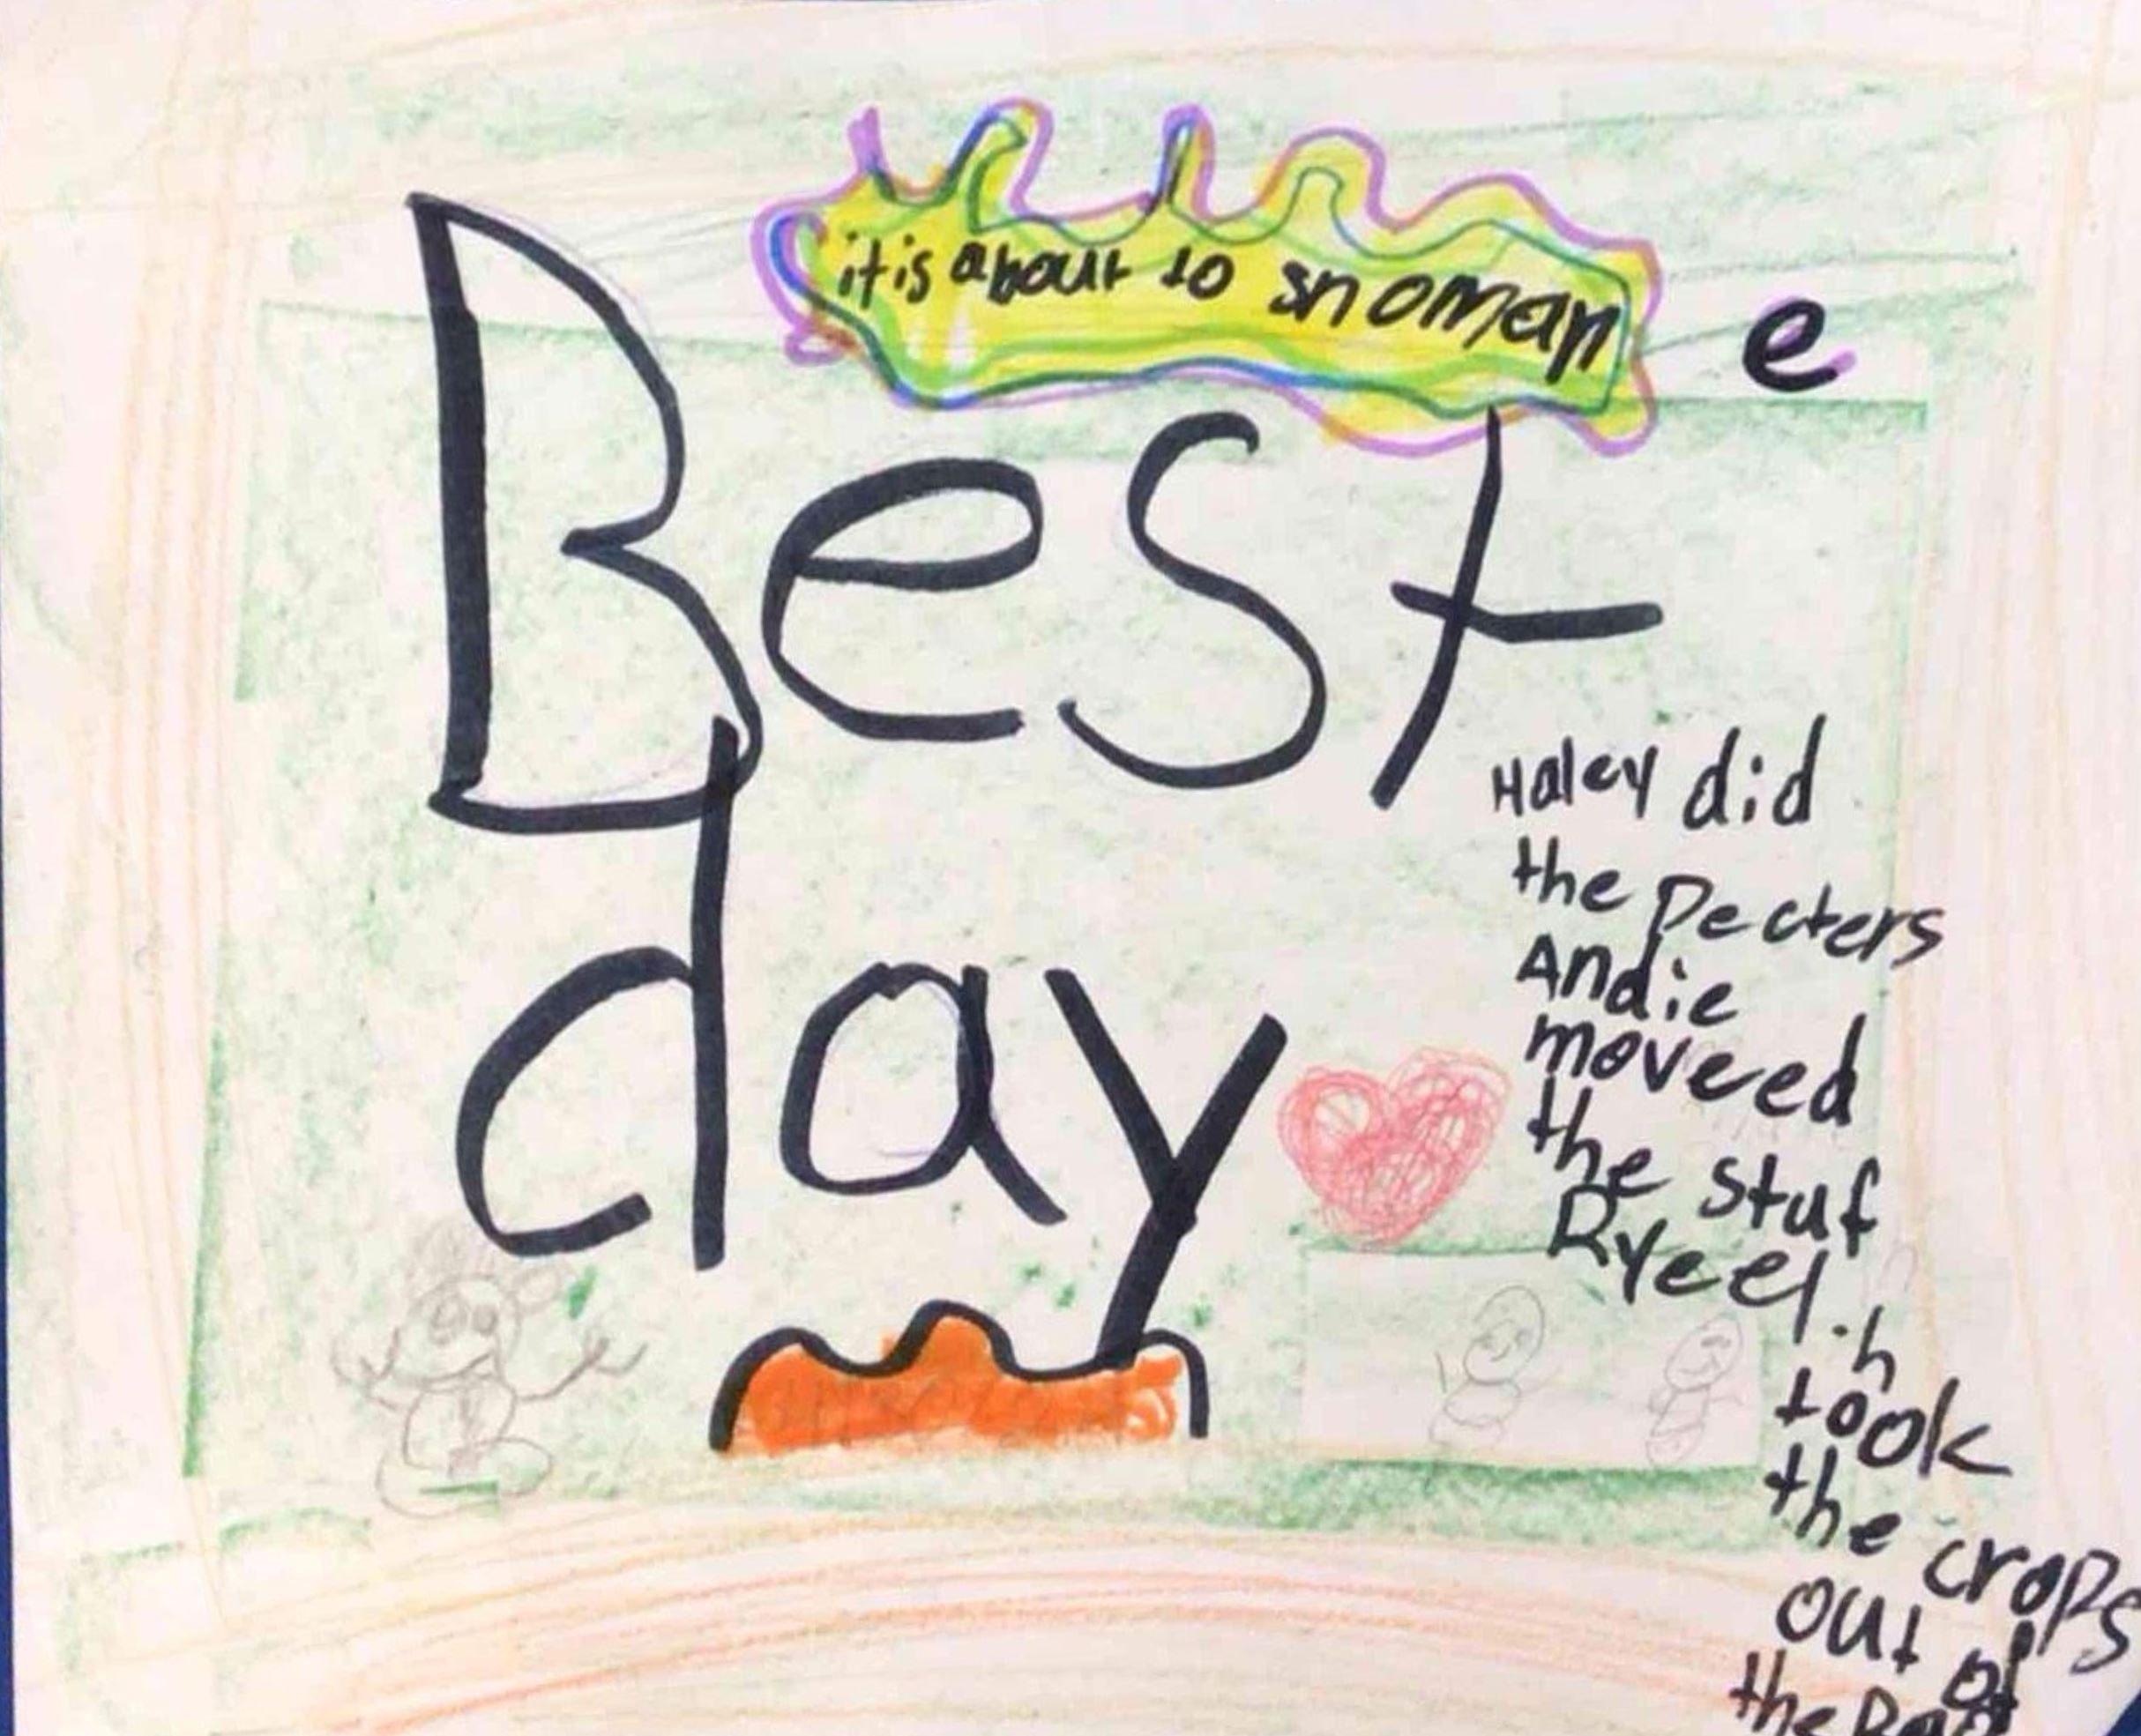 it is about to snoman
e
Best
day
Haley did
the Pecters
Andie
moveed
the stuf
Ryeel.h
took
the crops
out of
the